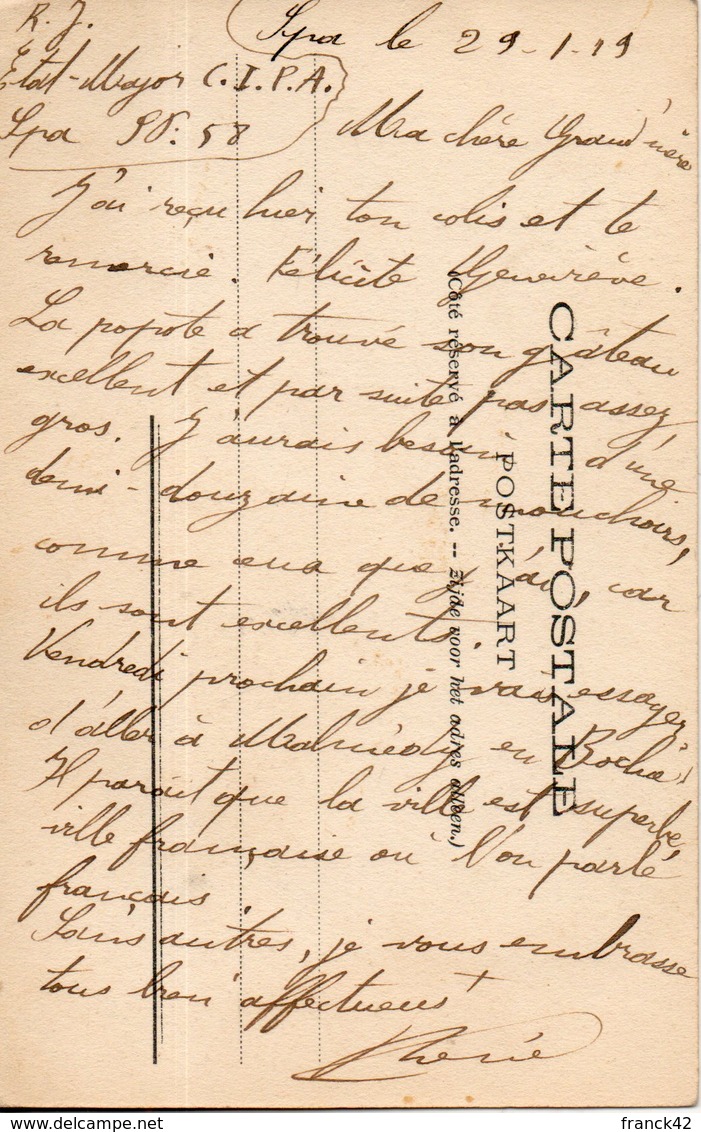 R. J.
Etat-Major C.I.P.A.
Spa SP: 58
Spa le 29-1-19
Ma chère Grand'mère
J'ai reçu hier ton colis et te
remercie. Félicite Geneviève.
La popote a trouvé son gâteau
excellent et par suite pas assez
gros. J'aurais besoin d'une
demi-douzaine de mouchoirs,
comme ceux que j'ai, car
ils sont excellents.
Vendredi prochain je vais essayer
d'aller à Malmédy en Bochie!
Il parait que la ville est superbe,
ville française où l'on parle
français.
Sans autres, je vous embrasse
tous bien affectueus^t
René
CARTE POSTALE
POSTKAART
(Côté réservé à l'adresse. -- Zijde voor het adres alleen.)
franck42